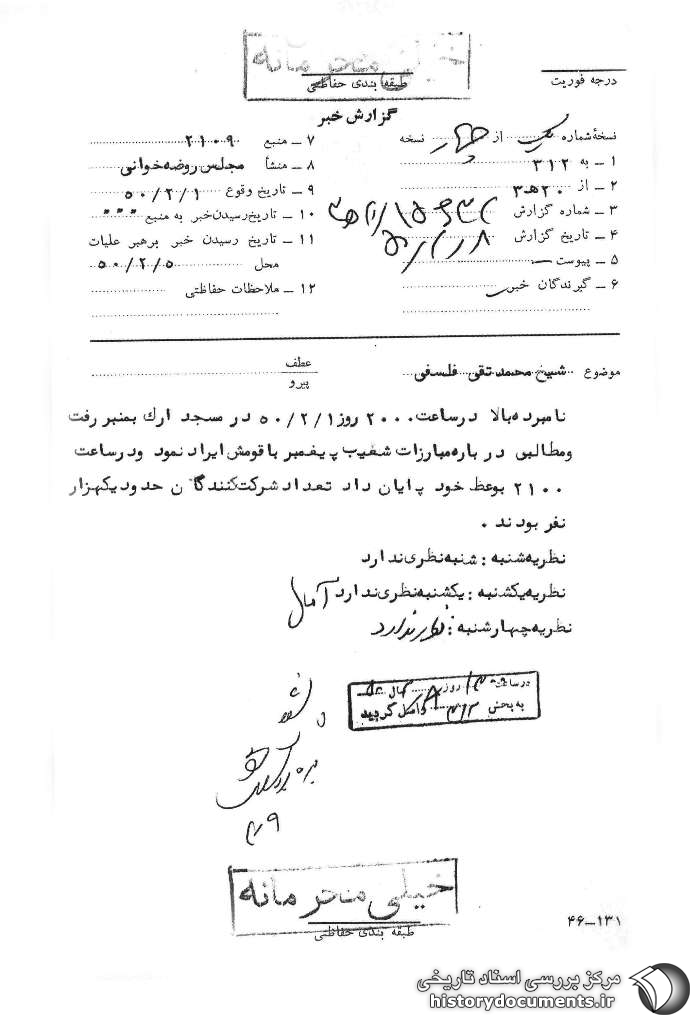 خیلی محرمانه
طبقه بندی حفاظتی
درجه فوریت
گزارش خبر
نسخهٔ شماره یک از چهار نسخه
۱ ــ به ۳۱۲
۲ ــ از ۲۰هـ۳
۳ ــ شماره گزارش
۴ ــ تاریخ گزارش
۵ ــ پیوست ــ
۶ ــ گیرندگان خبر
۷ ــ منبع ۲۱۰۹
۸ ــ منشأ مجلس روضه‌خوانی
۹ ــ تاریخ وقوع ۵۰/۲/۱
۱۰ ــ تاریخ رسیدن خبر به منبع ۰۰۰
۱۱ ــ تاریخ رسیدن خبر برهبر عملیات
محل ۵۰/۲/۵
۱۲ ــ ملاحظات حفاظتی
موضوع شیخ محمد تقی فلسفی
عطف
پیرو
نامبرده بالا در ساعت ۲۰۰۰ روز ۵۰/۲/۱ در مسجد ارك بمنبر رفت
ومطالبی در باره مبارزات شعیب پیغمبر با قومش ایراد نمود ودر ساعت
۲۱۰۰ بوعظ خود پایان داد تعداد شرکت‌کنندگان حدود یکهزار
نفر بودند .
نظریه شنبه : شنبه نظری ندارد
نظریه یکشنبه : یکشنبه نظری ندارد آمال
نظریه چهارشنبه : نظری ندارد
در ساعت روز سال
به بخش ۳۱۲ واصل گردید
خیلی محرمانه
طبقه بندی حفاظتی
۴۶ــ۱۳۱
مرکز بررسی اسناد تاریخی
historydocuments.ir